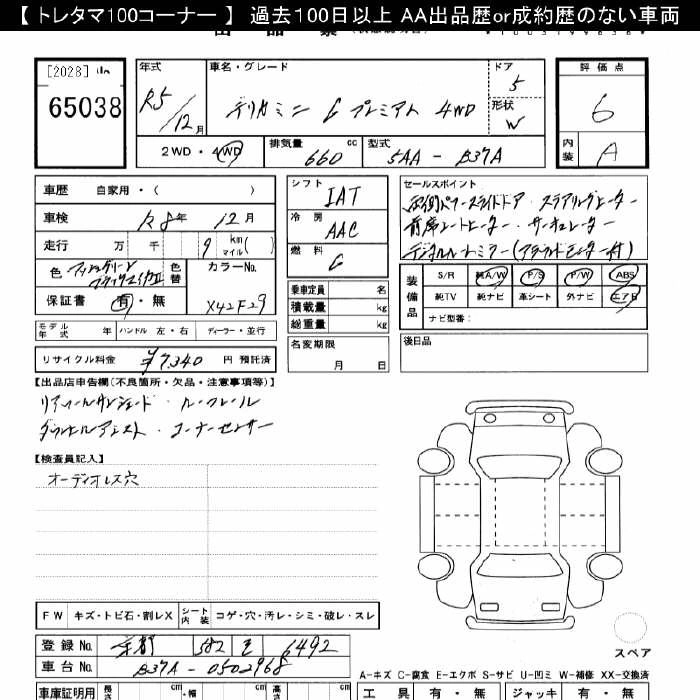 【 トレタマ100コーナー 】 過去100日以上 AA出品歴or成約歴のない車両
[2028]
65038
年式
R5/12月
車名・グレード
デリカミニ G プレミアム 4WD
ドア
5
形状
W
評価点
6
内装
A
2WD・4WD
排気量
660 cc
型式
5AA - B37A
車歴 自家用・( )
車検 R8年 12月
走行 万 千 9 km マイル( )
色 アッシュグリーン
ブラックマイカII
色替
カラーNo.
X42F29
保証書 有・無
モデル年式 年 ハンドル 左・右 ディーラー・並行
リサイクル料金 ¥7,340 円 預託済
シフト
IAT
冷房
AAC
燃料
G
乗車定員 名
積載量 kg
総重量 kg
名変期限
月 日
セールスポイント
両側パワースライドドア・ステアリングヒーター
前席シートヒーター・サーキュレーター
デジタルルームミラー(アラウンドモニター付)
装備品
S/R 純A/W P/S P/W ABS
純TV 純ナビ 革シート 外ナビ エアB
ナビ型番:
後日品
【出品店申告欄(不良箇所・欠品・注意事項等)】
リアシールサンシェード・ルーフレール
ダウンヒルアシスト・コーナーセンサー
【検査員記入】
オーディオレス穴
FW キズ・トビ石・割レX シート内装 コゲ・穴・汚レ・シミ・破レ・スレ
スペア
登録No. 京都 582 6492
車台No. B37A - 0502968
A-キズ C-腐食 E-エクボ S-サビ U-凹ミ W-補修 XX-交換済
車庫証明用 長さ cm ・幅 cm 高さ cm
工具 有・無 ジャッキ 有・無